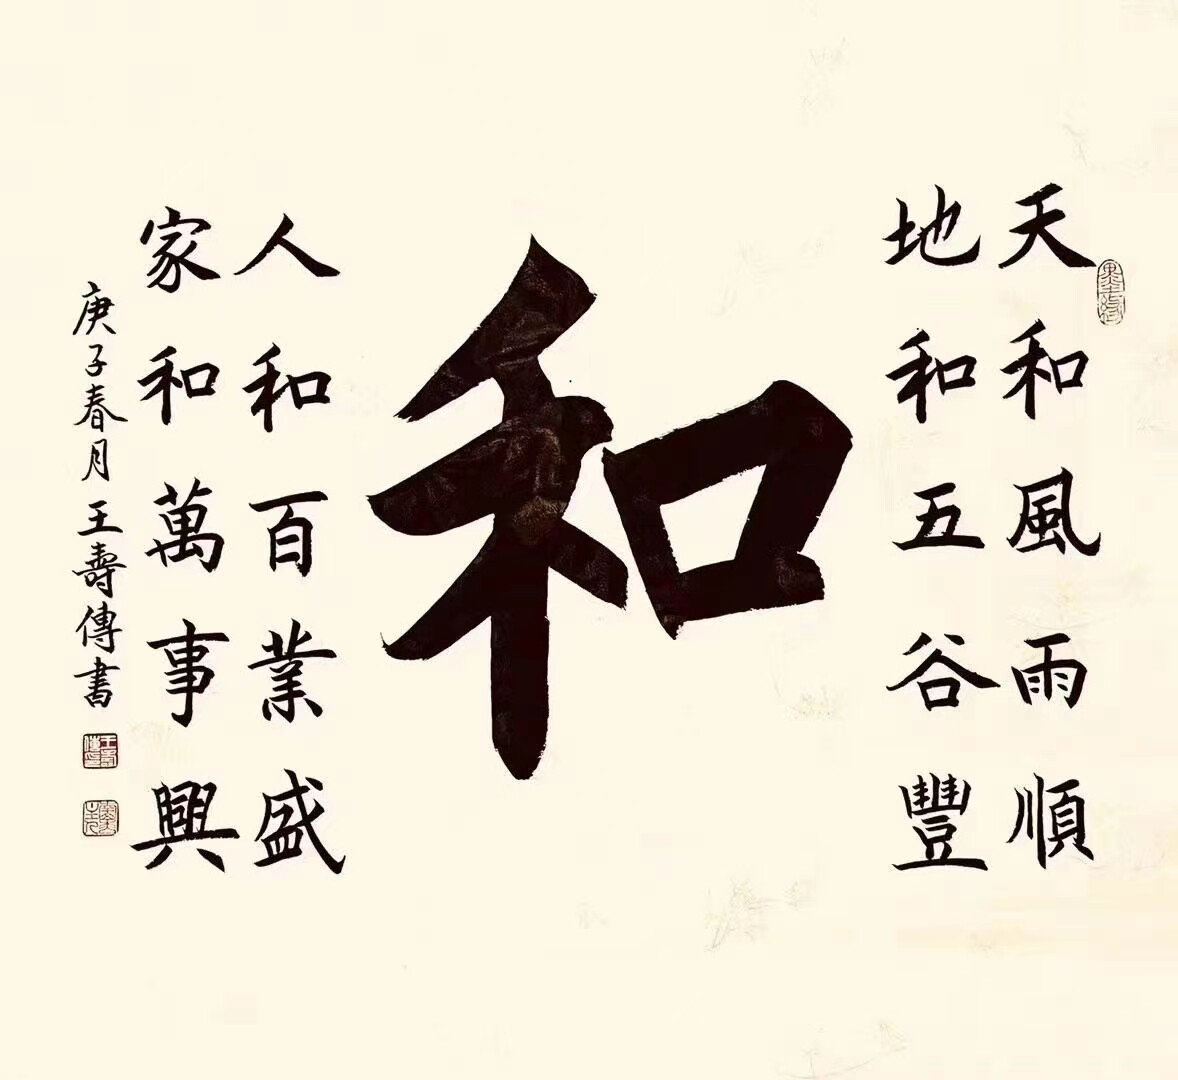 天和風雨順
地和五谷豐
和
人和百業盛
家和萬事興
庚子春月王壽傳書